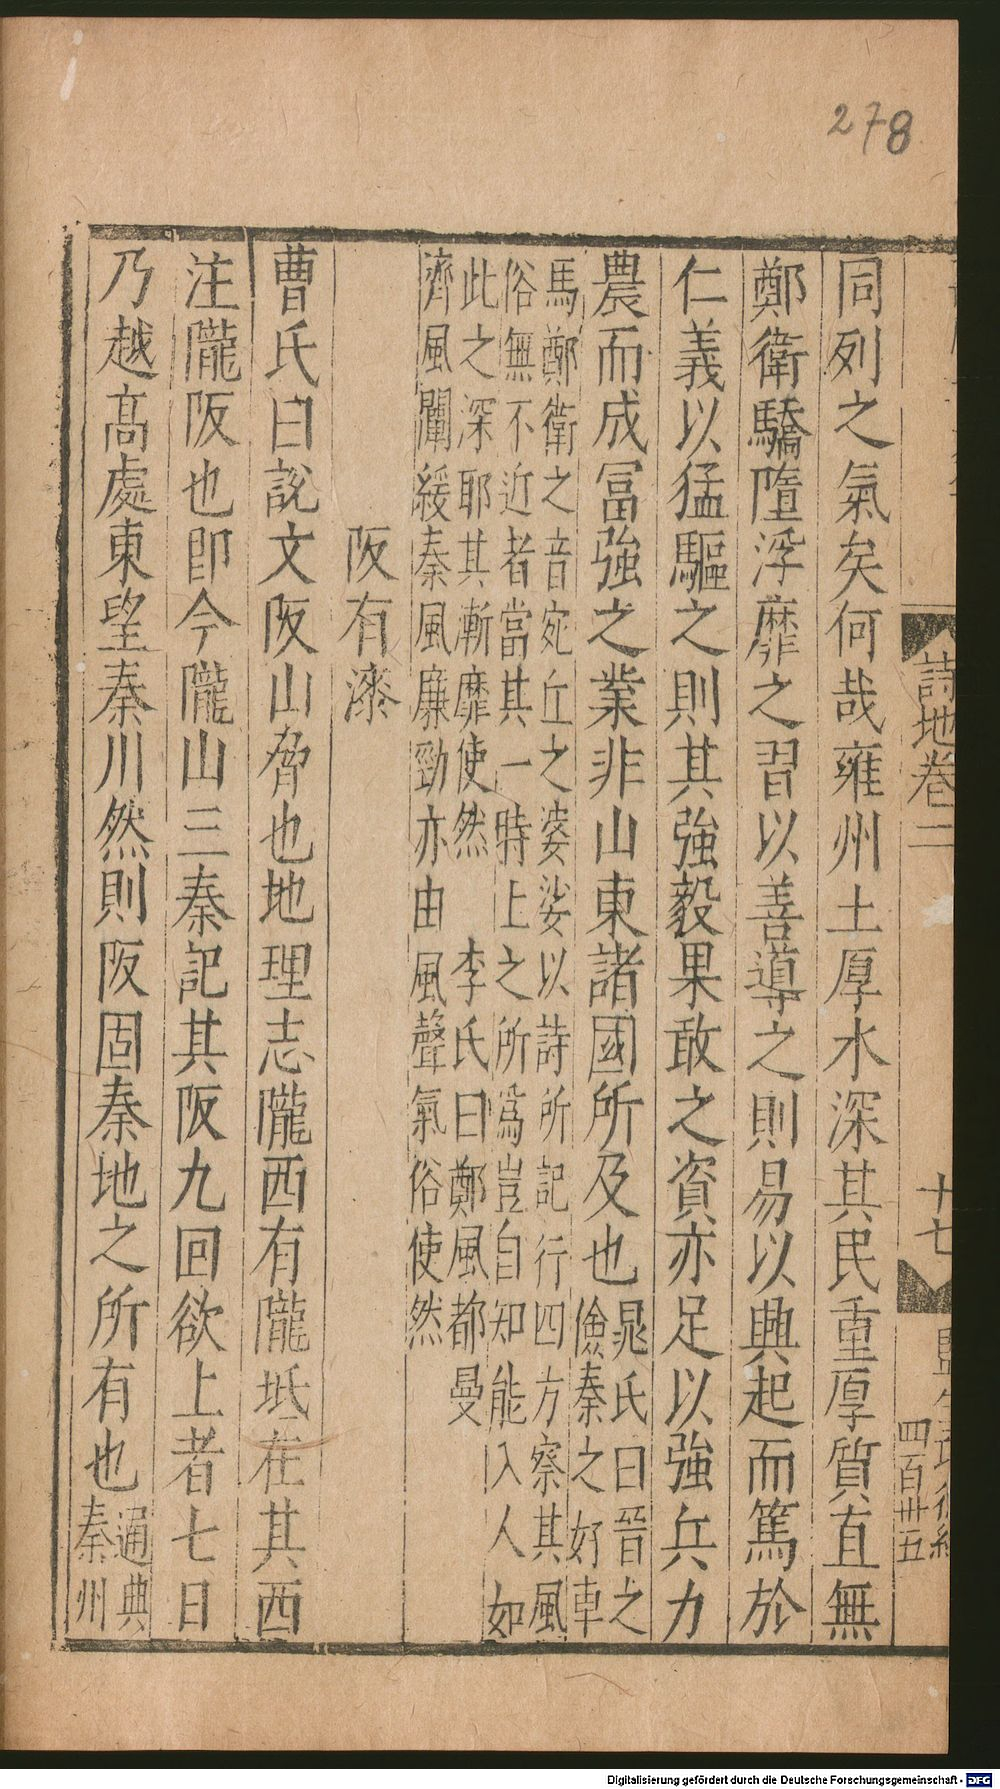 278
詩地卷二
十七
四百卅五
同列之氣矣何哉雍州土厚水深其民重厚質直無
鄭衛驕墮浮靡之習以善導之則易以興起而篤於
仁義以猛驅之則其強毅果敢之資亦足以強兵力
農而成冨強之業非山東諸國所及也晁氏曰晉之
儉秦之好車
馬鄭衛之音宛丘之婆娑以詩所記行四方察其風
俗無不近者當其一時上之所爲豈自知能入人如
此之深耶其漸靡使然 李氏曰鄭風都曼
濟風闡緩秦風廉勁亦由風聲氣俗使然
阪有漆
曹氏曰說文阪山脅也地理志隴西有隴坻在其西
注隴阪也即今隴山三秦記其阪九回欲上者七日
乃越高處東望秦川然則阪固秦地之所有也通典
秦州
Digitalisierung gefördert durch die Deutsche Forschungsgemeinschaft - DFG